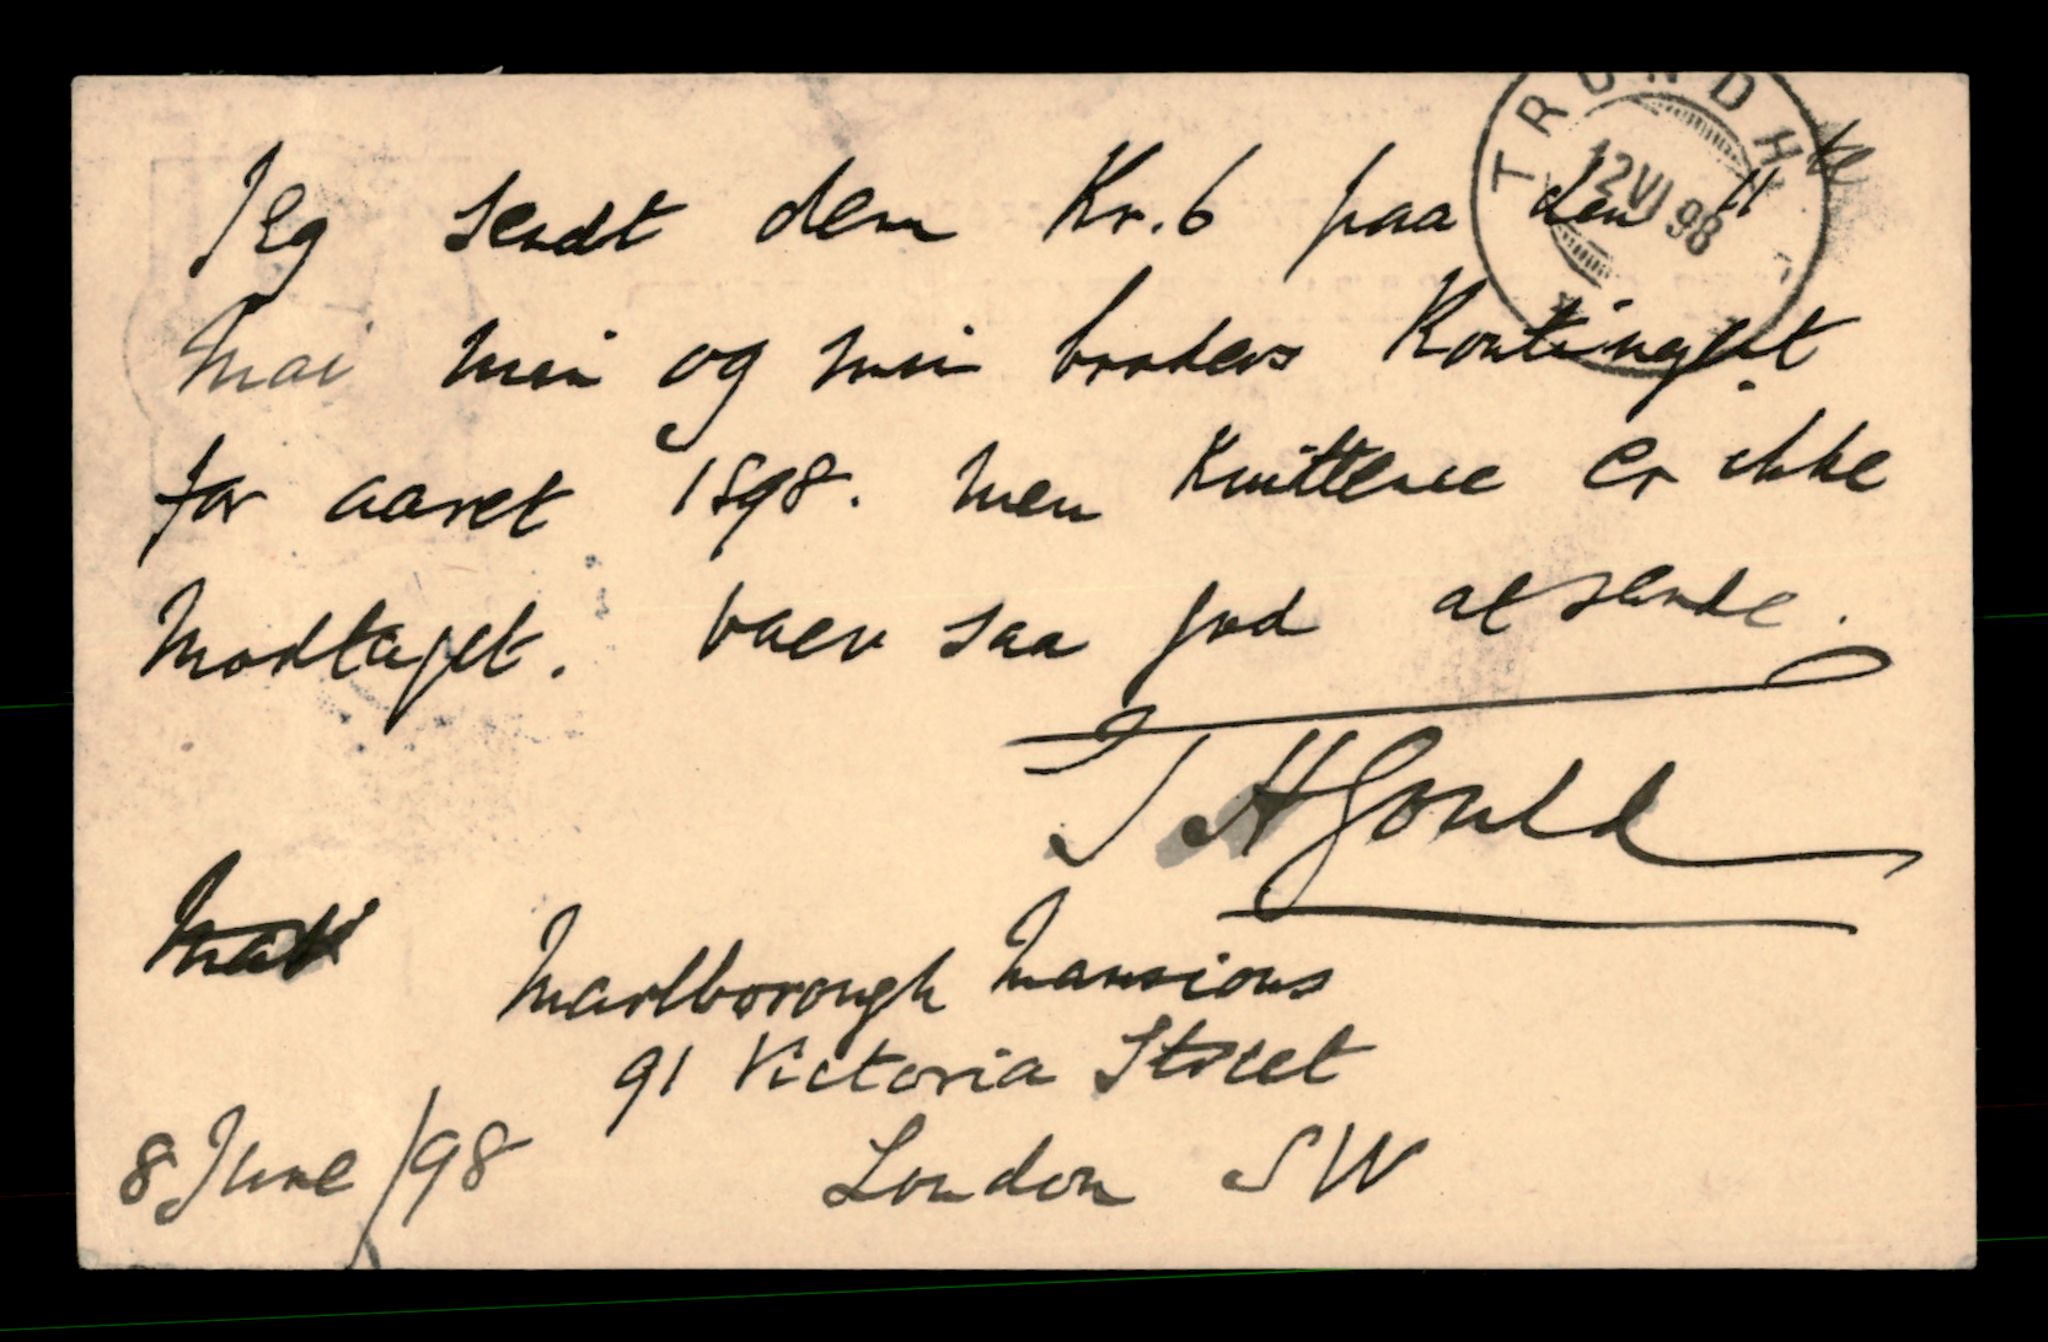 TRONDHJEM
12 VI 98
Jeg sendt dem Kr. 6 paa den 11te
Mai min og min broders Kontingent
for aaret 1898. men Kvittence er ikke
modtaget. vaer saa god at sende.
T H Gould
Marlborough Mansions
91 Victoria Street
8 June /98 London SW